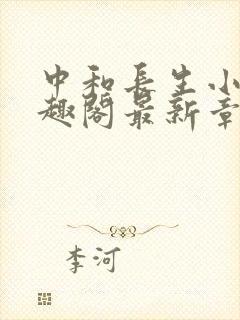 中和長生小
趣閣最新章
李河